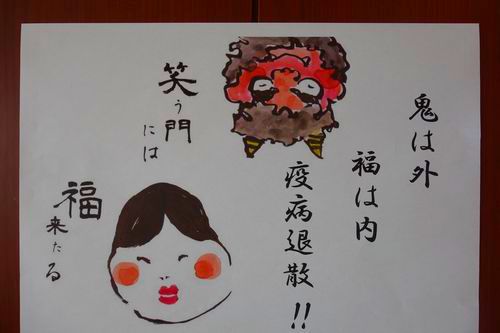 鬼は外
福は内
疫病退散!!
笑う門
には
福来たる